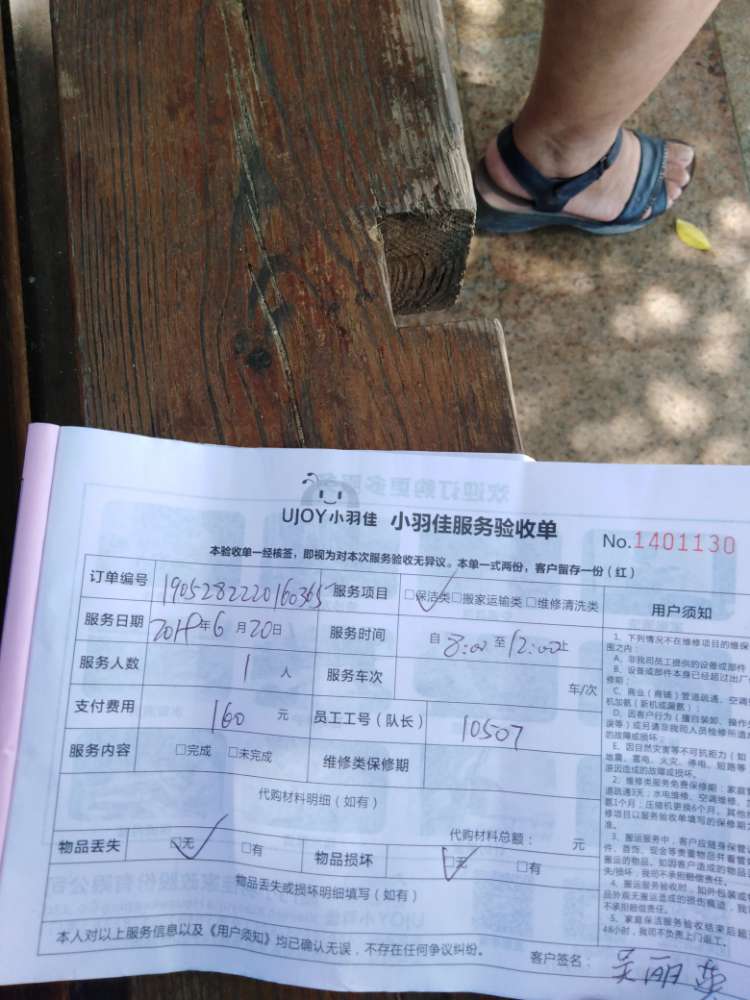 UJOY小羽佳 小羽佳服务验收单
No.1401130
本验收单一经核签，即视为对本次服务验收无异议。本单一式两份，客户留存一份（红）
订单编号 1905282220160365 服务项目 ☑保洁类□搬家运输类□维修清洗类
服务日期 2019年6月20日 服务时间 自8:00至12:00止
服务人数 1人 服务车次 车/次
支付费用 160元 员工工号（队长） 10507
服务内容 □完成 □未完成 维修类保修期
代购材料明细（如有）
代购材料总额： 元
物品丢失 ☑无 □有 物品损坏 ☑无 □有
物品丢失或损坏明细填写（如有）
本人对以上服务信息以及《用户须知》均已确认无误，不存在任何争议纠纷。
客户签名： 吴丽
用户须知
1、下列情况不在维修项目的维保
围之内：
A、非我司员工提供的设备或部件
B、设备或部件本身已经超过出厂
修期；
C、商业（商铺）管道疏通、空调
机加氨（新机或漏氨）；
D、因客户行为（擅自装卸、操作
误等）或另请非我司人员检修所造
的故障或损坏；
E、因自然灾害等不可抗拒力（如
地震、雷电、火灾、停电、短路等
原因造成的故障或损坏。
2、维修类服务免费保修期：家庭管
道疏通3天；水电维修、空调维修、
氨1个月；压缩机更换6个月。其他
修项目以服务验收单填写的保修期
准。
3、搬运服务中，客户应随身保管
件、首饰、现金等贵重物品并看管
搬运的物品。如因客户造成的物品
失/损坏，我司不承担赔偿责任。
4、搬运服务验收时，如外包装或
品外观无搬运造成的损伤痕迹，我
不承担赔偿责任。
5、家庭保洁服务验收结束后超
48小时，我司不负责上门返工。